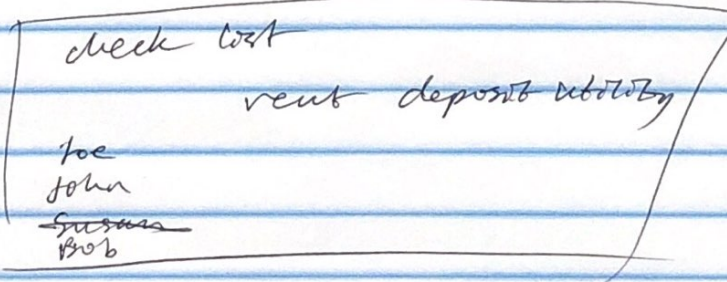 check cost
rent deposit utility
Joe
John
Susan
Bob